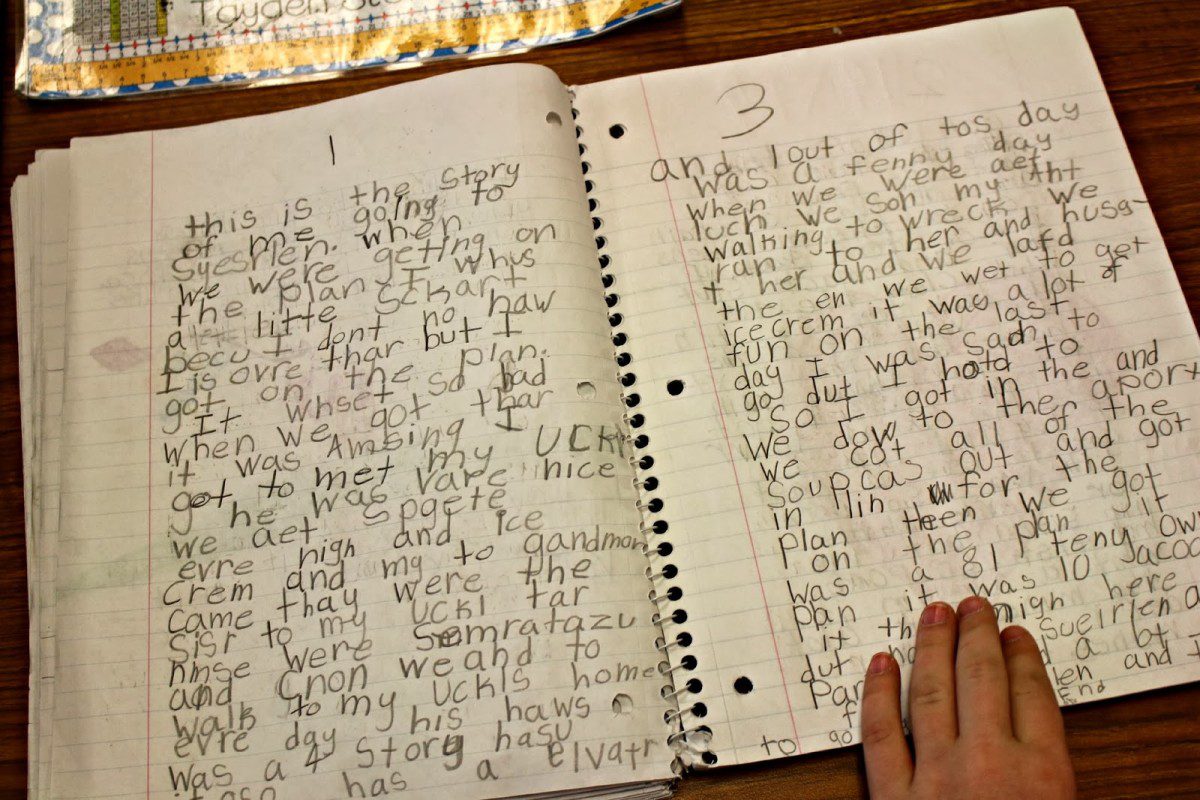 1
this is the story
of me going to
Syesrlen. when
we were getting on
the plan I whus
a little sckart
becu I dont no haw
I is ovre thar but I
got on the plan.
It whset so bad
when we got thar
it was Amsing I
got to met my UCKl
he was vare nice
we aet spgete
evre nigh and ice
Crem and my to gandmom
Came thay were the
Sisr to my UCKl tar
nmse were Semratazu
and Cnon we and to
walk to my UCKls home
evre day his haws
was a 4 Story hasu
has a elvatr
3
and 1 out of tos day
was a fenny day
when we were aet
luch we soh my tht
walking to wreck we
ran to her and husg
t her and we lafd
the en we wet to get
icecrem it was a lot of
fun on the last
day I was sad to
go dut I hatd to
so I got in the and
we dow to the aport
we cot all of the
soupcas out and got
in lin for the
plan then we got
on the plan it
was a 81 teny own
pan it was 10 Jacoo
it th nigh here
dut ha sueirlen a
Par d a bt
len and t
to go
End